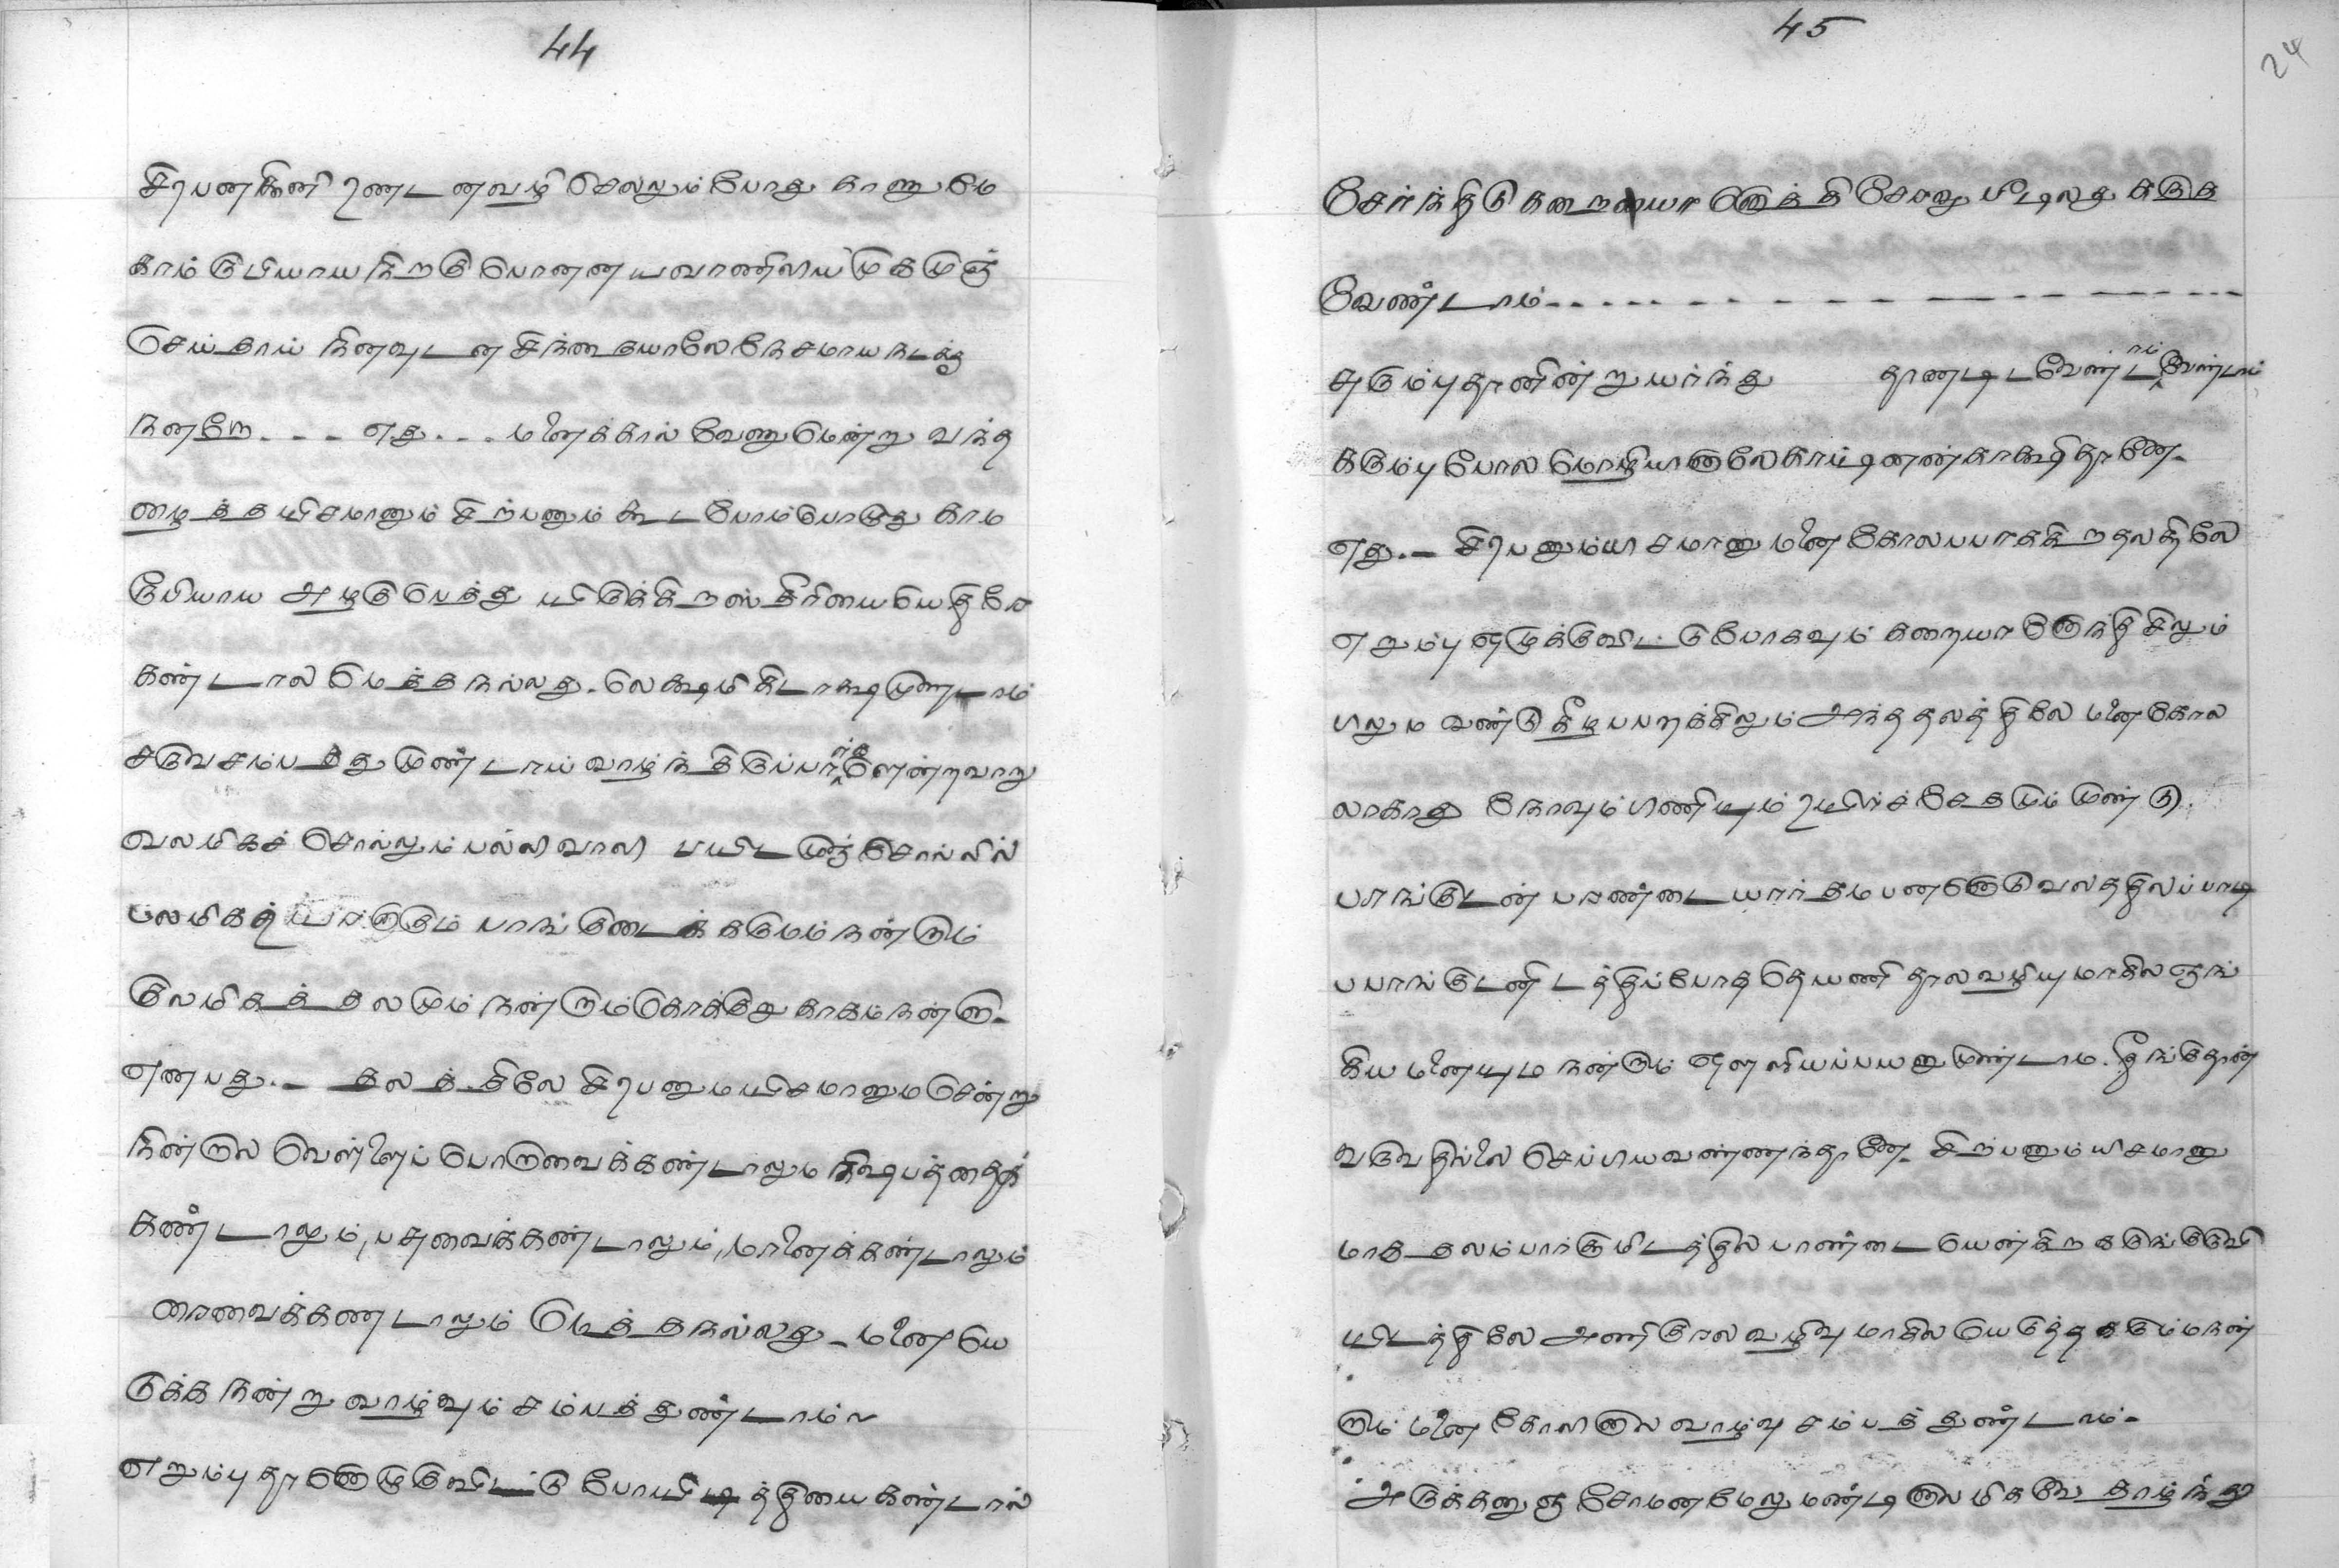 44
சிரபனகினி ரண்டனவழி செலலும்போது காணுமே
காம்ரூபியாயநிறகு பொனன யவாணிலிய முகமுஞ்
செய்தாய் நினவுடன சிந்தையாலே நேசமாய நடக்க
நனறே - - - எது - - - மனைக்கால் வேணுமென்று வந்த
ழைத்த யிசமானும் சிற்பனும் கூட போம்பொழுது காம
ரூபியாய அழகு பெத்து யிருக்கிறஸ்திரியையெதிரே
கண்டால மெத்த நல்லது. லெக்ஷமி கிடாக்ஷமுண்டாம்
சருவ சம்பத்து முண்டாய் வாழ்ந்திருப்பார்களென்றவாறு
வலமிகச் சொல்லும் பல்லி வாலி பயிடமுஞ் சொல்லில்
பலமிகத் பாங்குடைக் கருமம் நன்றாம்
குலமிகத் தலமும் நன்றாம் கொக்குறு காகம் நன்று-
எனபது.- தலத்திலே சிரபனும யிசமானும சென்று
நின்றால வெள்ளைப் பொருவைக்கண்டாலும ரிஷபத்தைக்
கண்டாலும், பசுவைக்கண்டாலும், மானைக்கண்டாலும்
ரைவைக்கணடாலும் மெத்த நல்லது - மனையெ
டுக்க நன்று வாழ்வும் சம்பத்துண்டாம்
எறும்பு தானெழுகுவிட்டு போயி த்தியை கண்டால்
45
24
சேர்ந்திடு கறையானெத்தி சேரலு மீடிலது கருக
வேண்டாம் - - - - - - - - - - - -
அரும்புதானின்றுயர்ந்து தாணடிடவேண்டாம் வேண்டாம்
கரும்புபோல மொழியாளுலே காட்டினண்காக்ஷி தானே-
எது.- சிரபனும்யி சமானு மனை கோலபபாககிறதலதிலே
எறும்பு எழுக்குவிட்டு போகவும் கறையானெந்திசிலும்
மலும வண்டு கீழபபறக்கிலும் அந்த தலத்திலே மனை கோல
லாகாது நோவும் பிணியும் ரயிர்ச்சேதமும் முண்டு.
பாங்குடன் பாண்டையார் தமபனனெடு வலததிலப்பாடி
பபாங்குடனிடத்திப்போத தெயணி தால வழியுமாகில ஏங்
கிய மனையும நன்றாம் எள்ளியப்பயனுமுண்டாம. தீங்குதான்
வருவதில்லை செப்பியவண்ணந்தானே- சிற்பனும் யிசமானு
மாக தலம்பார்குமிடத்தில பாண்டையென்கிற கருங்குருவி
யிடத்திலே அணிகுால வழிவு மாகில யெடுத்த கரும்மநன்
றாம் மனை கோலினால வாழ்வு சம்பத்துண்டாம்-
அடுக்கனுஞ சோமனமேலு மண்டினால மிகவே தாழ்ந்து